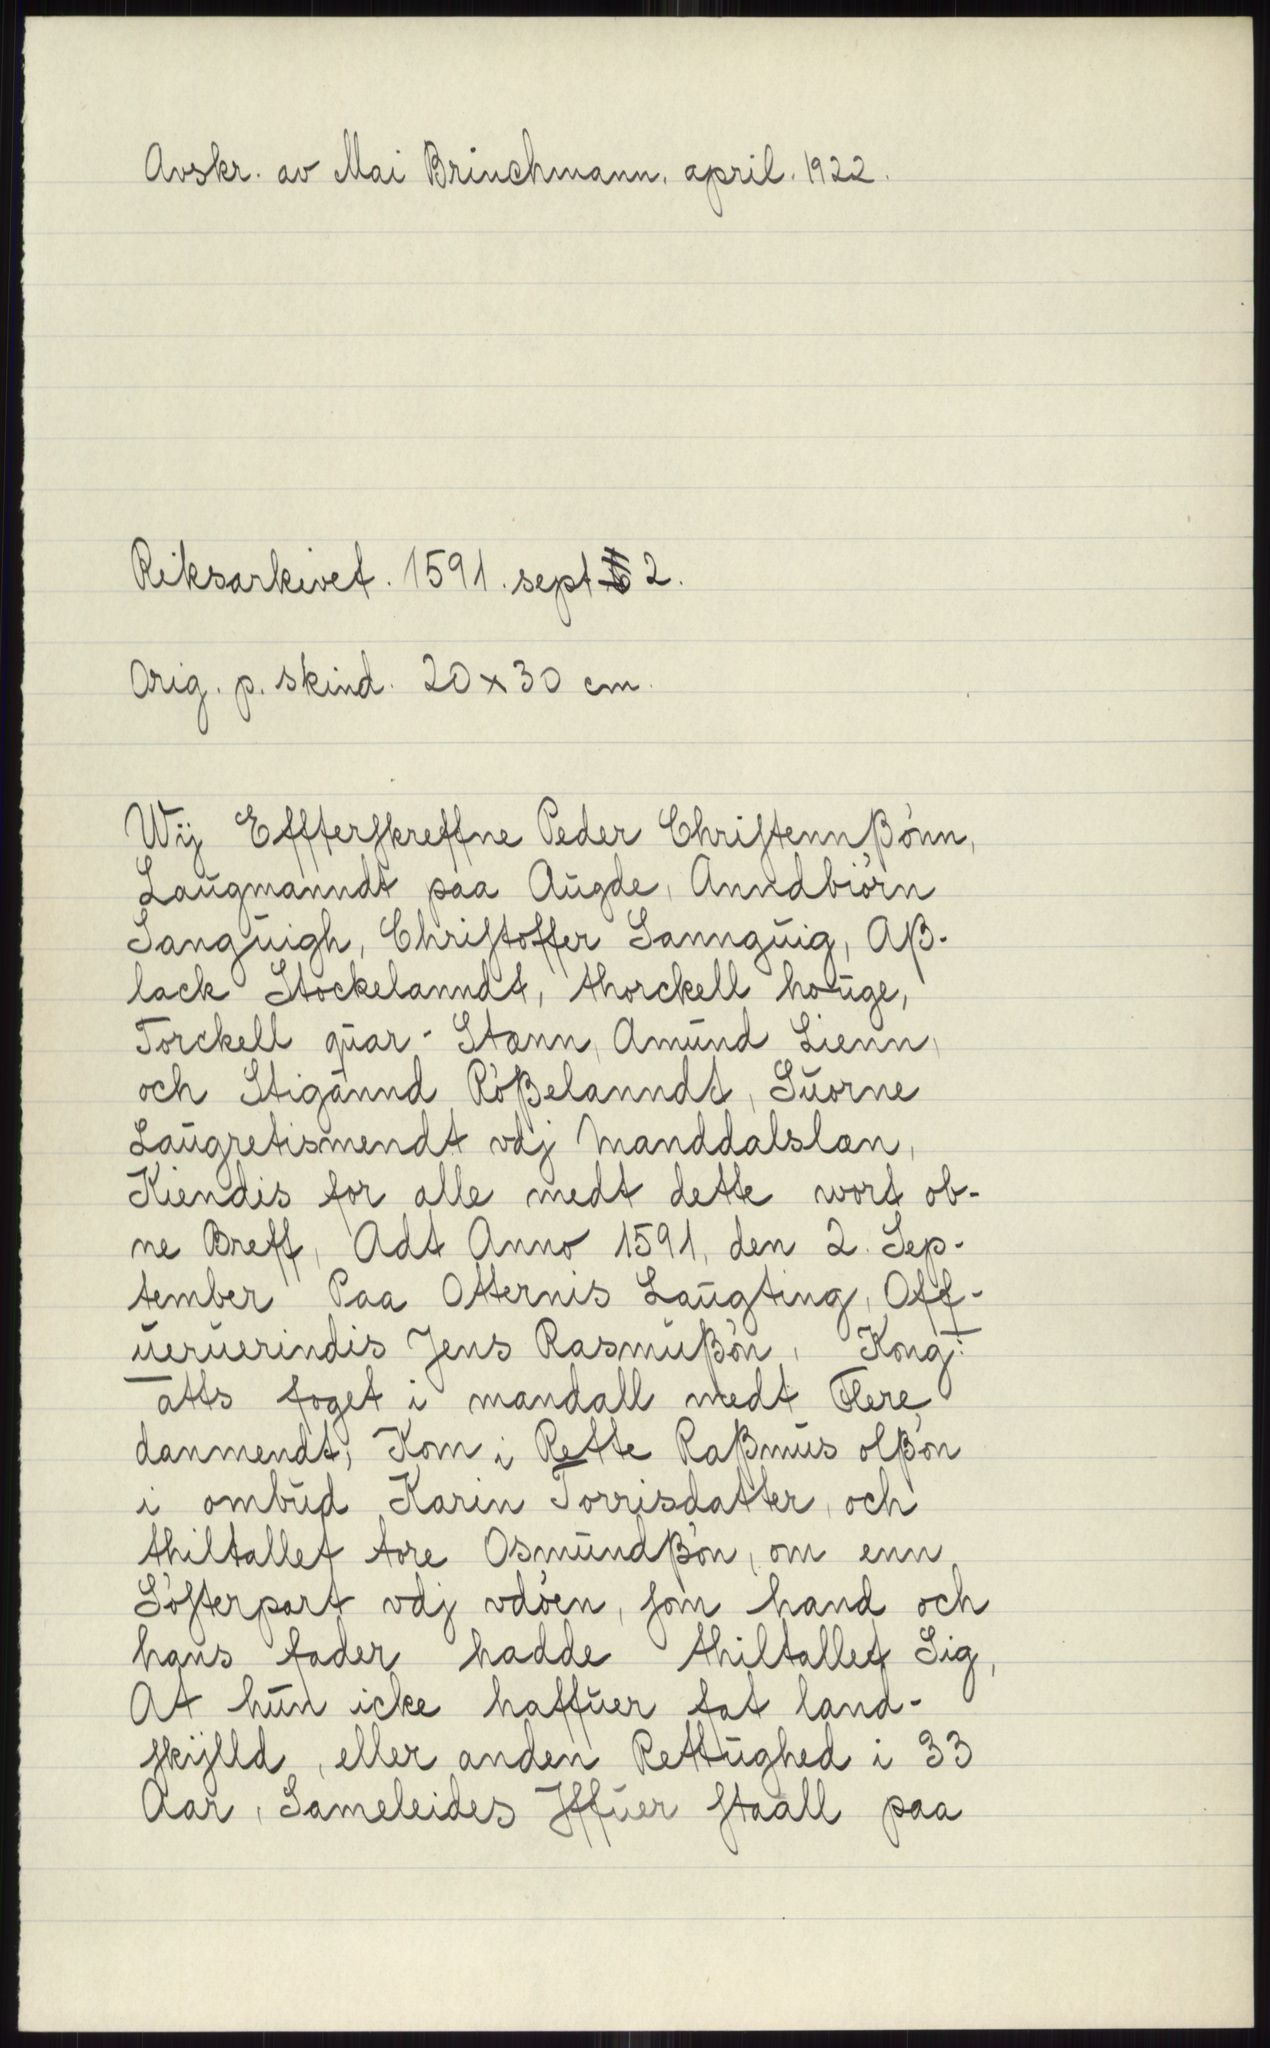 Avskr. av Mai Brinchmann. april. 1922.
Riksarkivet. 1591. sept 2.
Orig. p. skind. 20 x 30 cm.
Wij Efftterskreffne Peder Christennßønn,
Laugmanndt paa Augde, Anndbiørn
Sanguigh, Christoffer Sannguig, Aß-
lack Stockelanndt, thorckell houge,
Torckell quar-Stenn, Amund Lienn,
och Stigannd Røßelanndt, Suorne
Laugretismendt vdj Manddalslæn,
Kiendis for alle medt dette wort ob-
ne Breff, Adt Anno 1591, den 2. Sep-
tember Paa Otternis Laugting, Off-
ueruerindis Jens Rasmußøn, Kong:
atts foget i mandall medt Flere
danmendt, Kom i Rette Raßmus olßøn
i ombud Karin Torrisdatter, och
thiltallet tore Osmundßøn, om enn
Søfterpart vdj vdøen, som hand och
hans fader hadde thiltallet Sig,
At hun icke haffuer fat land-
skylld, eller anden Rettughed i 33
Aar, Sameleides Iffuer staall paa